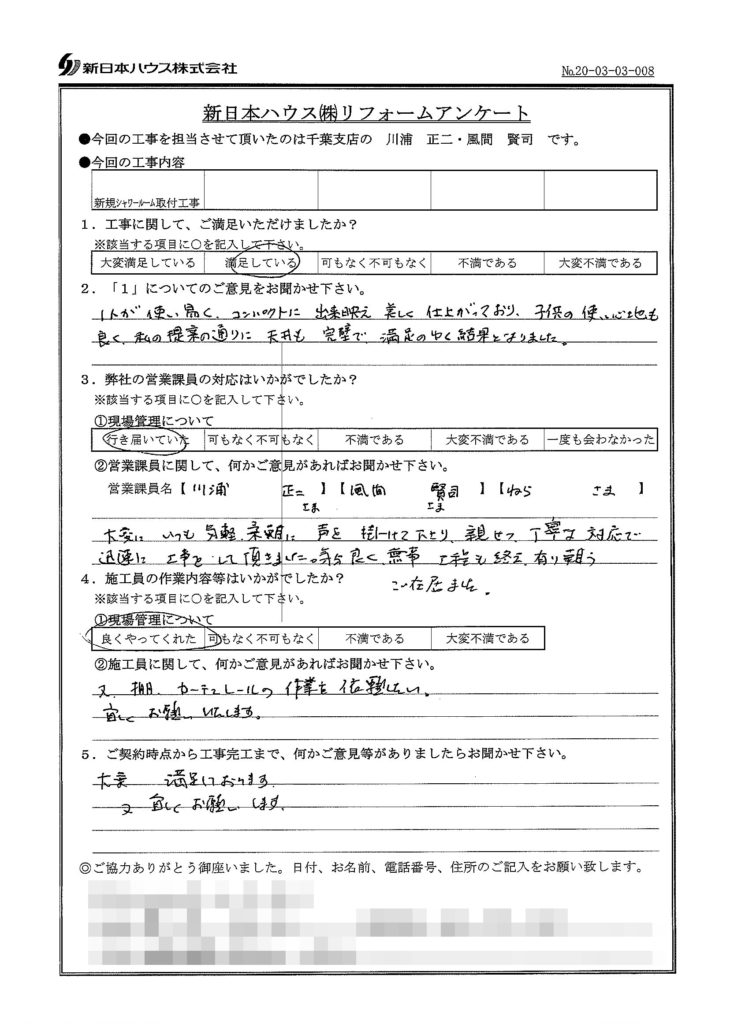 新日本ハウス株式会社
№20-03-03-008
新日本ハウス㈱リフォームアンケート
●今回の工事を担当させて頂いたのは千葉支店の 川浦 正二・風間 賢司 です。
●今回の工事内容
新規ｼｬﾜｰﾙｰﾑ取付工事
1．工事に関して、ご満足いただけましたか？
※該当する項目に○を記入して下さい。
大変満足している 満足している 可もなく不可もなく 不満である 大変不満である
2．「1」についてのご意見をお聞かせ下さい。
使い易く、コンパクトに 出来映え 美しく 仕上がっており、子供の使い心地も
良く、私の提案の通りに 天井も 完璧で 満足のゆく結果となりました。
3．弊社の営業課員の対応はいかがでしたか？
※該当する項目に○を記入して下さい。
①現場管理について
行き届いていた 可もなく不可もなく 不満である 大変不満である 一度も会わなかった
②営業課員に関して、何かご意見があればお聞かせ下さい。
営業課員名【 川浦 正二 】【 風間 賢司 】【 さま 】
さま さま
大変に いつも 気軽 に 声を 掛けて下さり、親せつ、丁寧な 対応で
迅速に 工事をして頂きました。気持良く、無事 工程も終え、有り難う
4．施工員の作業内容等はいかがでしたか？
ご在居ました。
※該当する項目に○を記入して下さい。
①現場管理について
良くやってくれた 可もなく不可もなく 不満である 大変不満である
②施工員に関して、何かご意見があればお聞かせ下さい。
又、棚、カーテンレールの 作業を 依頼したい。
宜しく お願い いたします。
5．ご契約時点から工事完工まで、何かご意見等がありましたらお聞かせ下さい。
大変 満足しております。
又 宜しく お願い します。
◎ご協力ありがとう御座いました。日付、お名前、電話番号、住所のご記入をお願い致します。